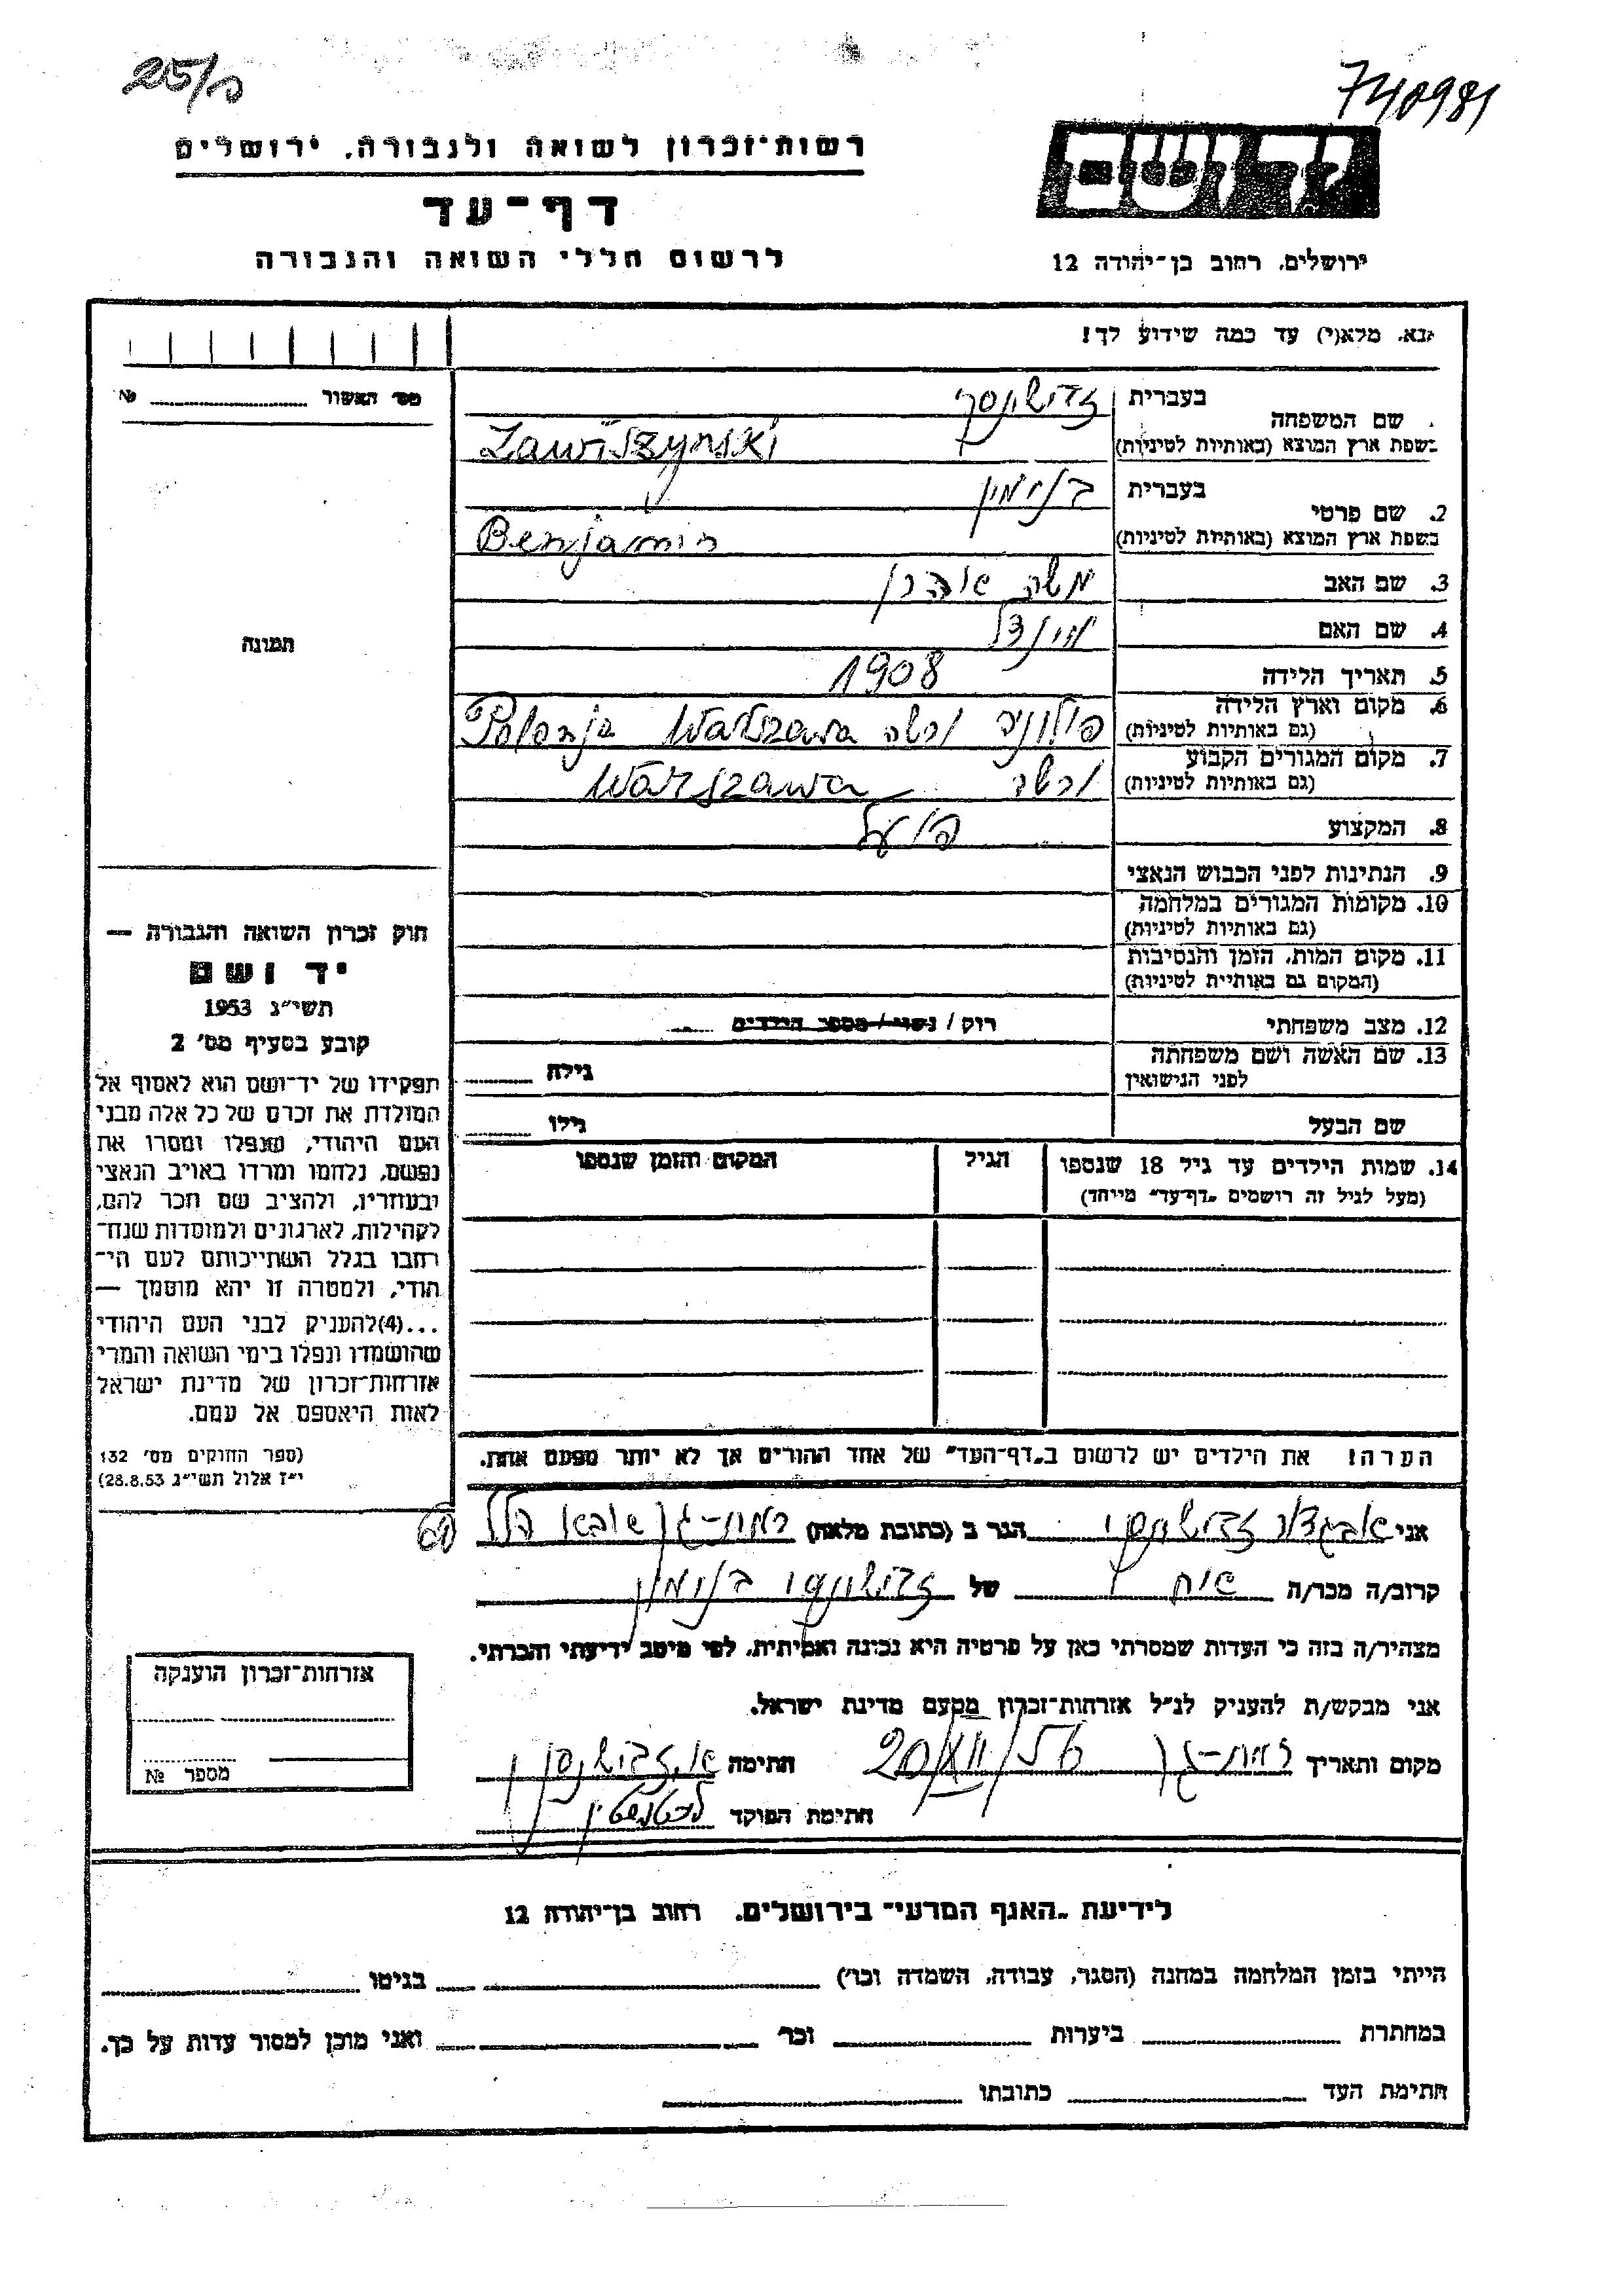 25/ס
740981
רשות־זכרון לשואה ולגבורה, ירושלים
דף־עד
לרשום חללי השואה והגבורה
ירושלים, רחוב בן־יהודה 12
נא, מלא(י) עד כמה שידוע לך!
מס׳ האשור № 
שם המשפחה בעברית זבישינסקי
בשפת ארץ המוצא (באותיות לטיניות) Zawiszyński
2. שם פרטי בעברית בנימין
בשפת ארץ המוצא (באותיות לטיניות) Benjamin
3. שם האב משה אהרן
4. שם האם
5. תאריך הלידה 1908
6. מקום וארץ הלידה פולניה ורשה Warszawa Polonja
(גם באותיות לטיניות)
7. מקום המגורים הקבוע ורשה Warszawa
(גם באותיות לטיניות)
8. המקצוע פועל
9. הנתינות לפני הכבוש הנאצי
10. מקומות המגורים במלחמה
(גם באותיות לטיניות)
11. מקום המות, הזמן והנסיבות
(המקום גם באותיות לטיניות)
12. מצב משפחתי רווק / נשוי / מספר הילדים
13. שם האשה ושם משפחתה
לפני הנישואין גילה
שם הבעל גילו
14. שמות הילדים עד גיל 18 שנספו הגיל המקום והזמן שנספו
(מעל לגיל זה רושמים „דף־עד״ מיוחד)
תמונה
חוק זכרון השואה והגבורה —
יד ושם
תשי״ג 1953
קובע בסעיף מס׳ 2
תפקידו של יד־ושם הוא לאסוף אל
המולדת את זכרם של כל אלה מבני
העם היהודי, שנפלו ומסרו את
נפשם, נלחמו ומרדו באויב הנאצי
ובעוזריו, ולהציב שם וזכר להם,
לקהילות, לארגונים ולמוסדות שנח־
רבו בגלל השתייכותם לעם הי־
הודי, ולמטרה זו יהא מוסמך —
...(4)להעניק לבני העם היהודי
שהושמדו ונפלו בימי השואה והמרי
אזרחות־זכרון של מדינת ישראל
לאות היאספם אל עמם.
(ספר החוקים מס׳ 132
י״ז אלול תשי״ג 28.8.53)
הערה! את הילדים יש לרשום ב„דף־העד״ של אחד ההורים אך לא יותר מפעם אחת.
אני אביגדור זבישינסקי הגר ב (כתובת מלאה) רמת-גן אבא הלל 69
קרוב/ה מכר/ה אח של זבישינסקי בנימין
מצהיר/ה בזה כי העדות שמסרתי כאן על פרטיה היא נכונה ואמיתית, לפי מיטב ידיעתי והכרתי.
אני מבקש/ת להעניק לנ״ל אזרחות־זכרון מטעם מדינת ישראל.
מקום ותאריך רמת-גן 20/XII/56 חתימה א. זבישינסקי
חתימת הפוקד
אזרחות־זכרון הוענקה
מספר №
לידיעת „האגף המדעי״ בירושלים, רחוב בן־יהודה 12
הייתי בזמן המלחמה במחנה (הסגר, עבודה, השמדה וכו׳) בגיטו
במחתרת ביערות וכו׳ ואני מוכן למסור עדות על כך.
חתימת העד כתובתו